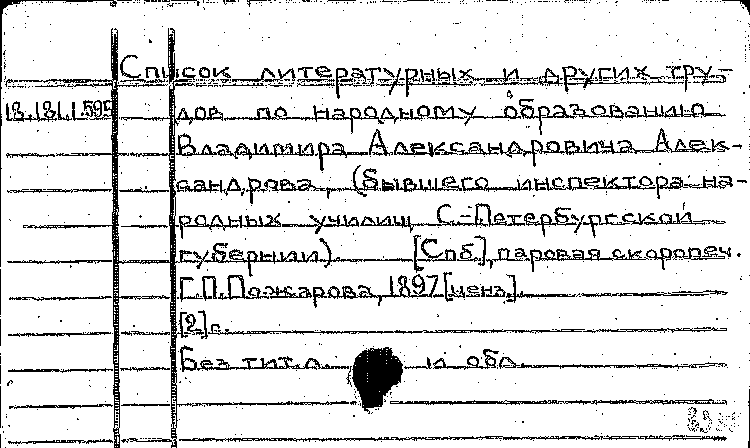 Список литературных и других тру-
18.181.1.595 дов по народному образованию
Владимира Александровича Алек-
сандрова, (бывшего инспектора на-
родных училищ С.-Петербургской
губернии). [Спб], паровая скоропеч.
Г.П. Пожарова, 1897 [ценз.].
[2] с.
Без тит. л. и обл.